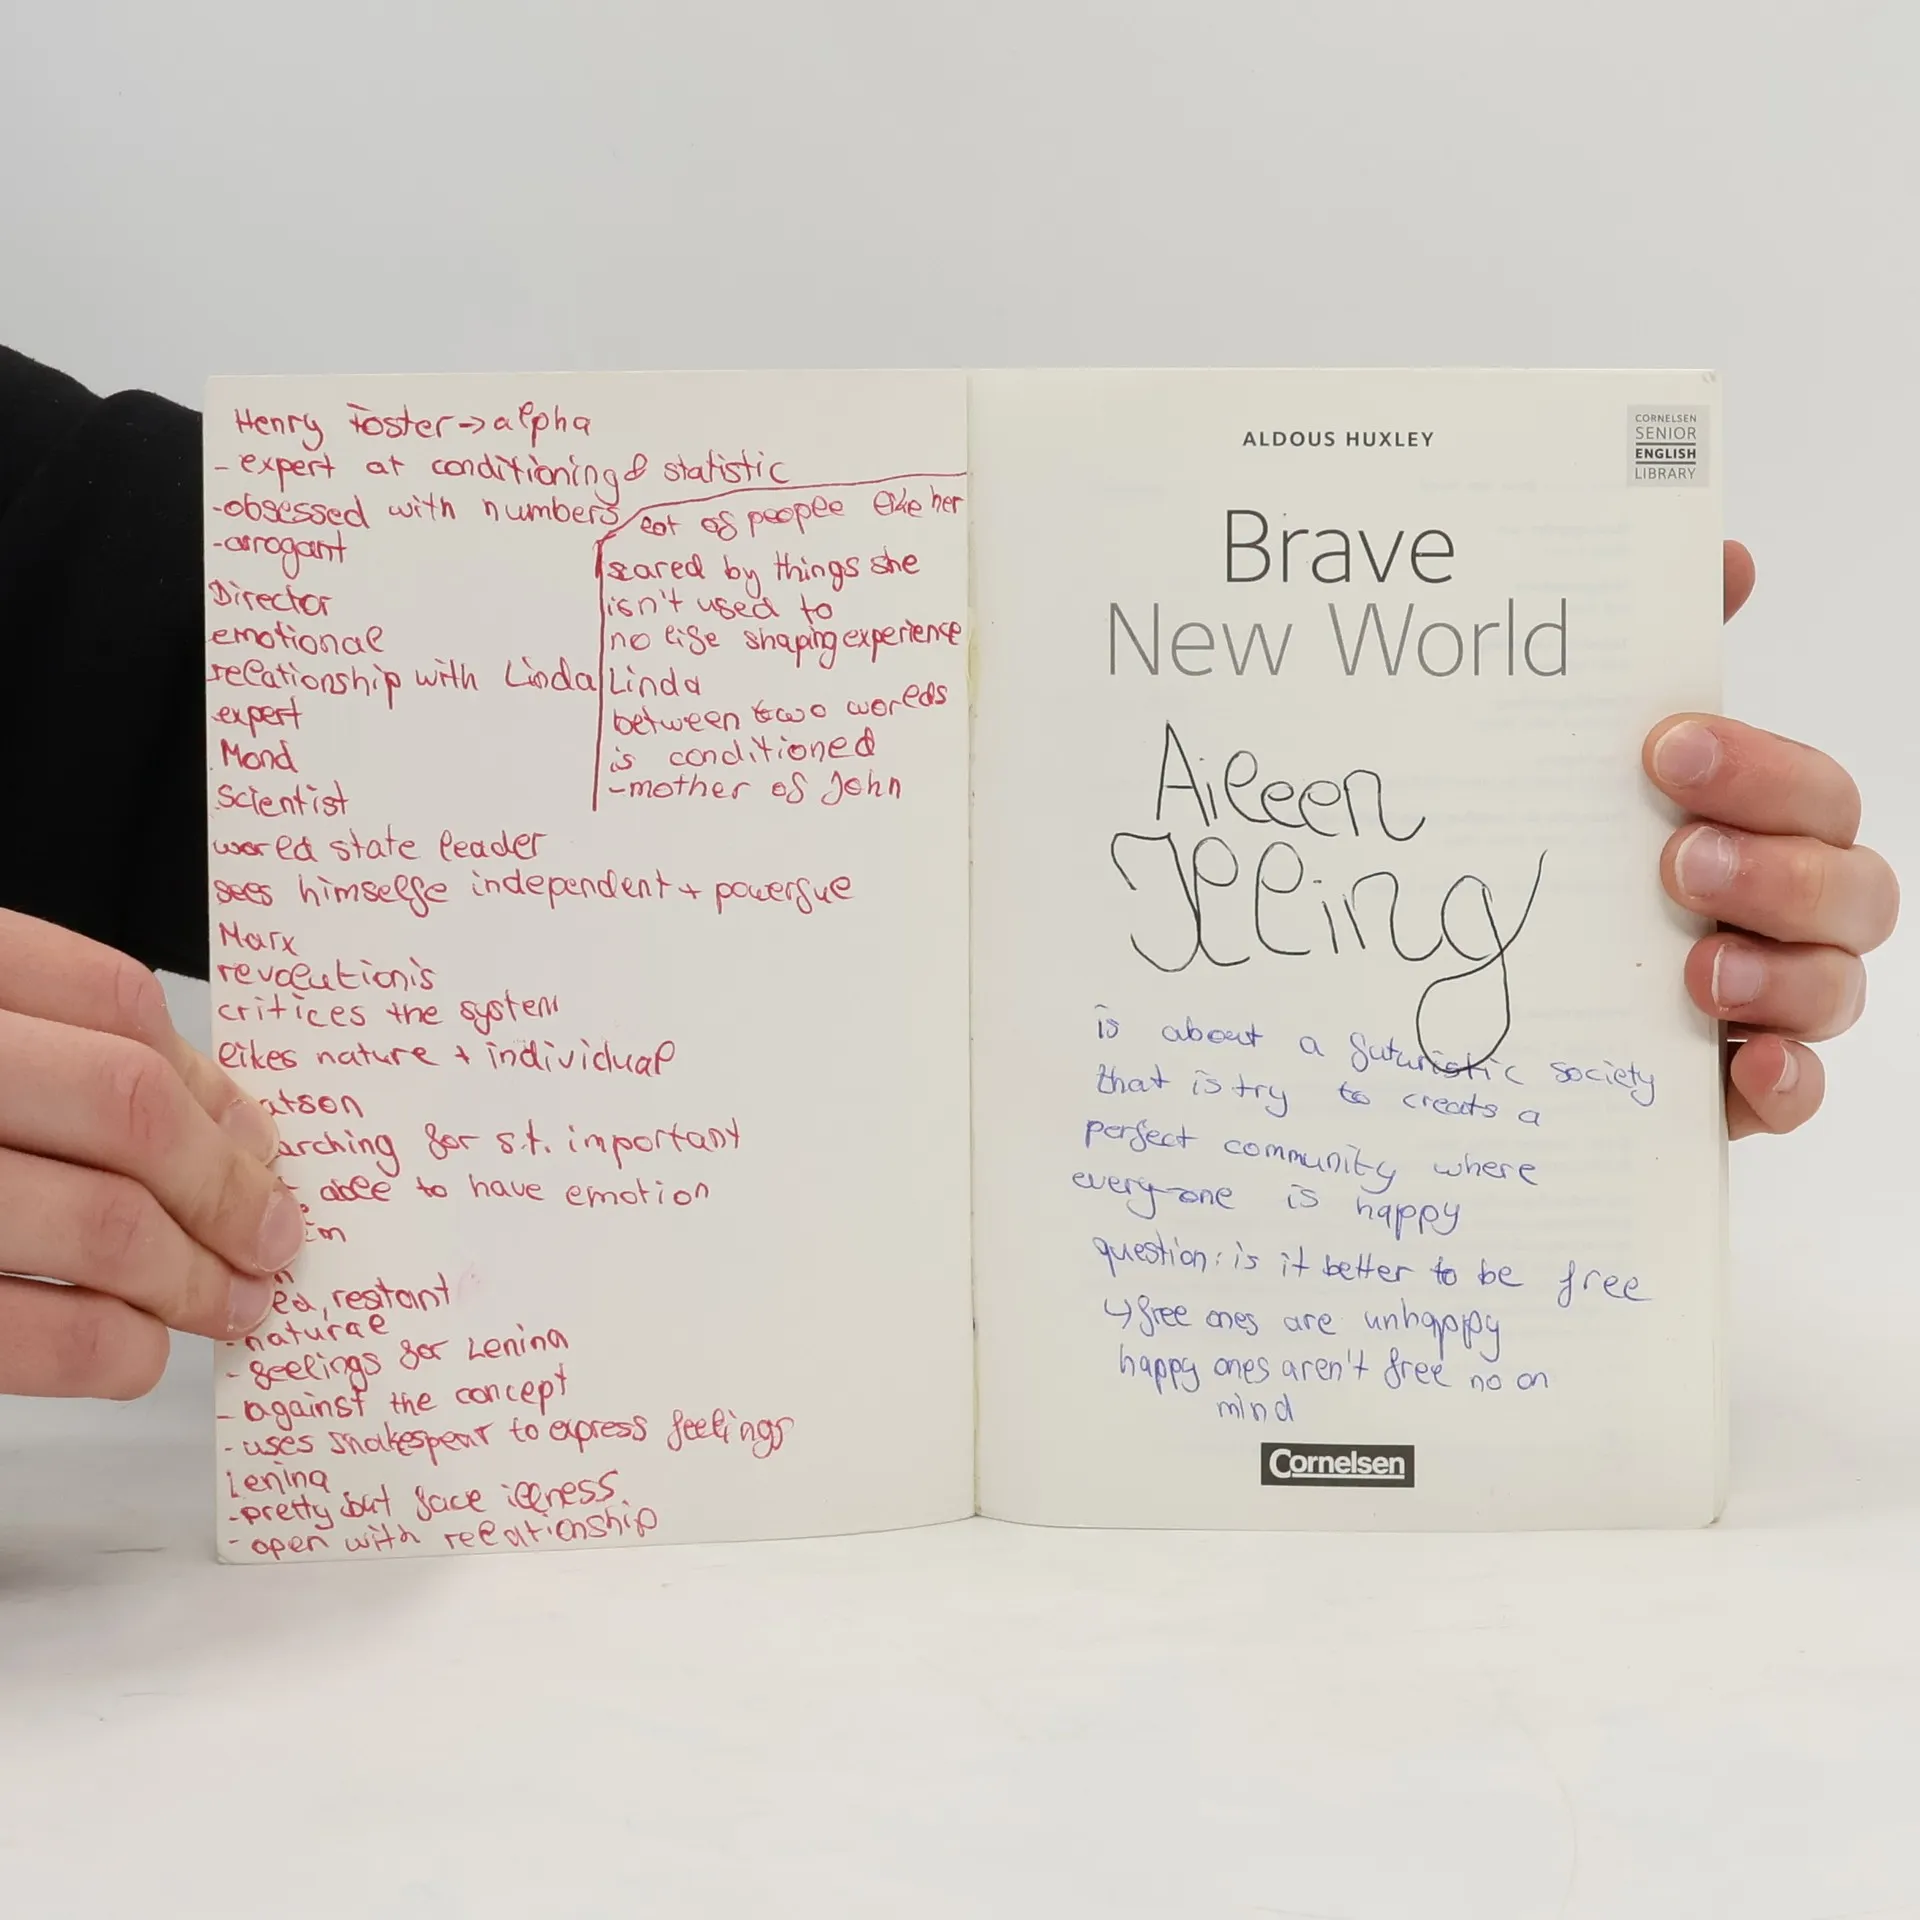 Henry Foster → alpha
- expert at conditioning & statistic
- obsessed with numbers
- arrogant
Director
emotional
relationship with Linda
expert
Mond
Scientist
world state leader
sees himselfe independent + powerful
Marx
revolutionis
critices the system
likes nature + individual
atson
arching for s.t. important
able to have emotion
ed, restant
- natural
- feelings for Lenina
- against the concept
- uses shakespear to express feelings
Lenina
- pretty but face illness
- open with relationship
lot of people like her
scared by things she
isn't used to
no life shaping experience
Linda
between two worlds
is conditioned
- mother of John
ALDOUS HUXLEY
CORNELSEN
SENIOR
ENGLISH
LIBRARY
Brave
New World
Aileen
Illing
is about a futuristic society
that is try to creats a
perfect community where
every-one is happy
question: is it better to be free
↳ free ones are unhappy
happy ones aren't free no on
mind
Cornelsen